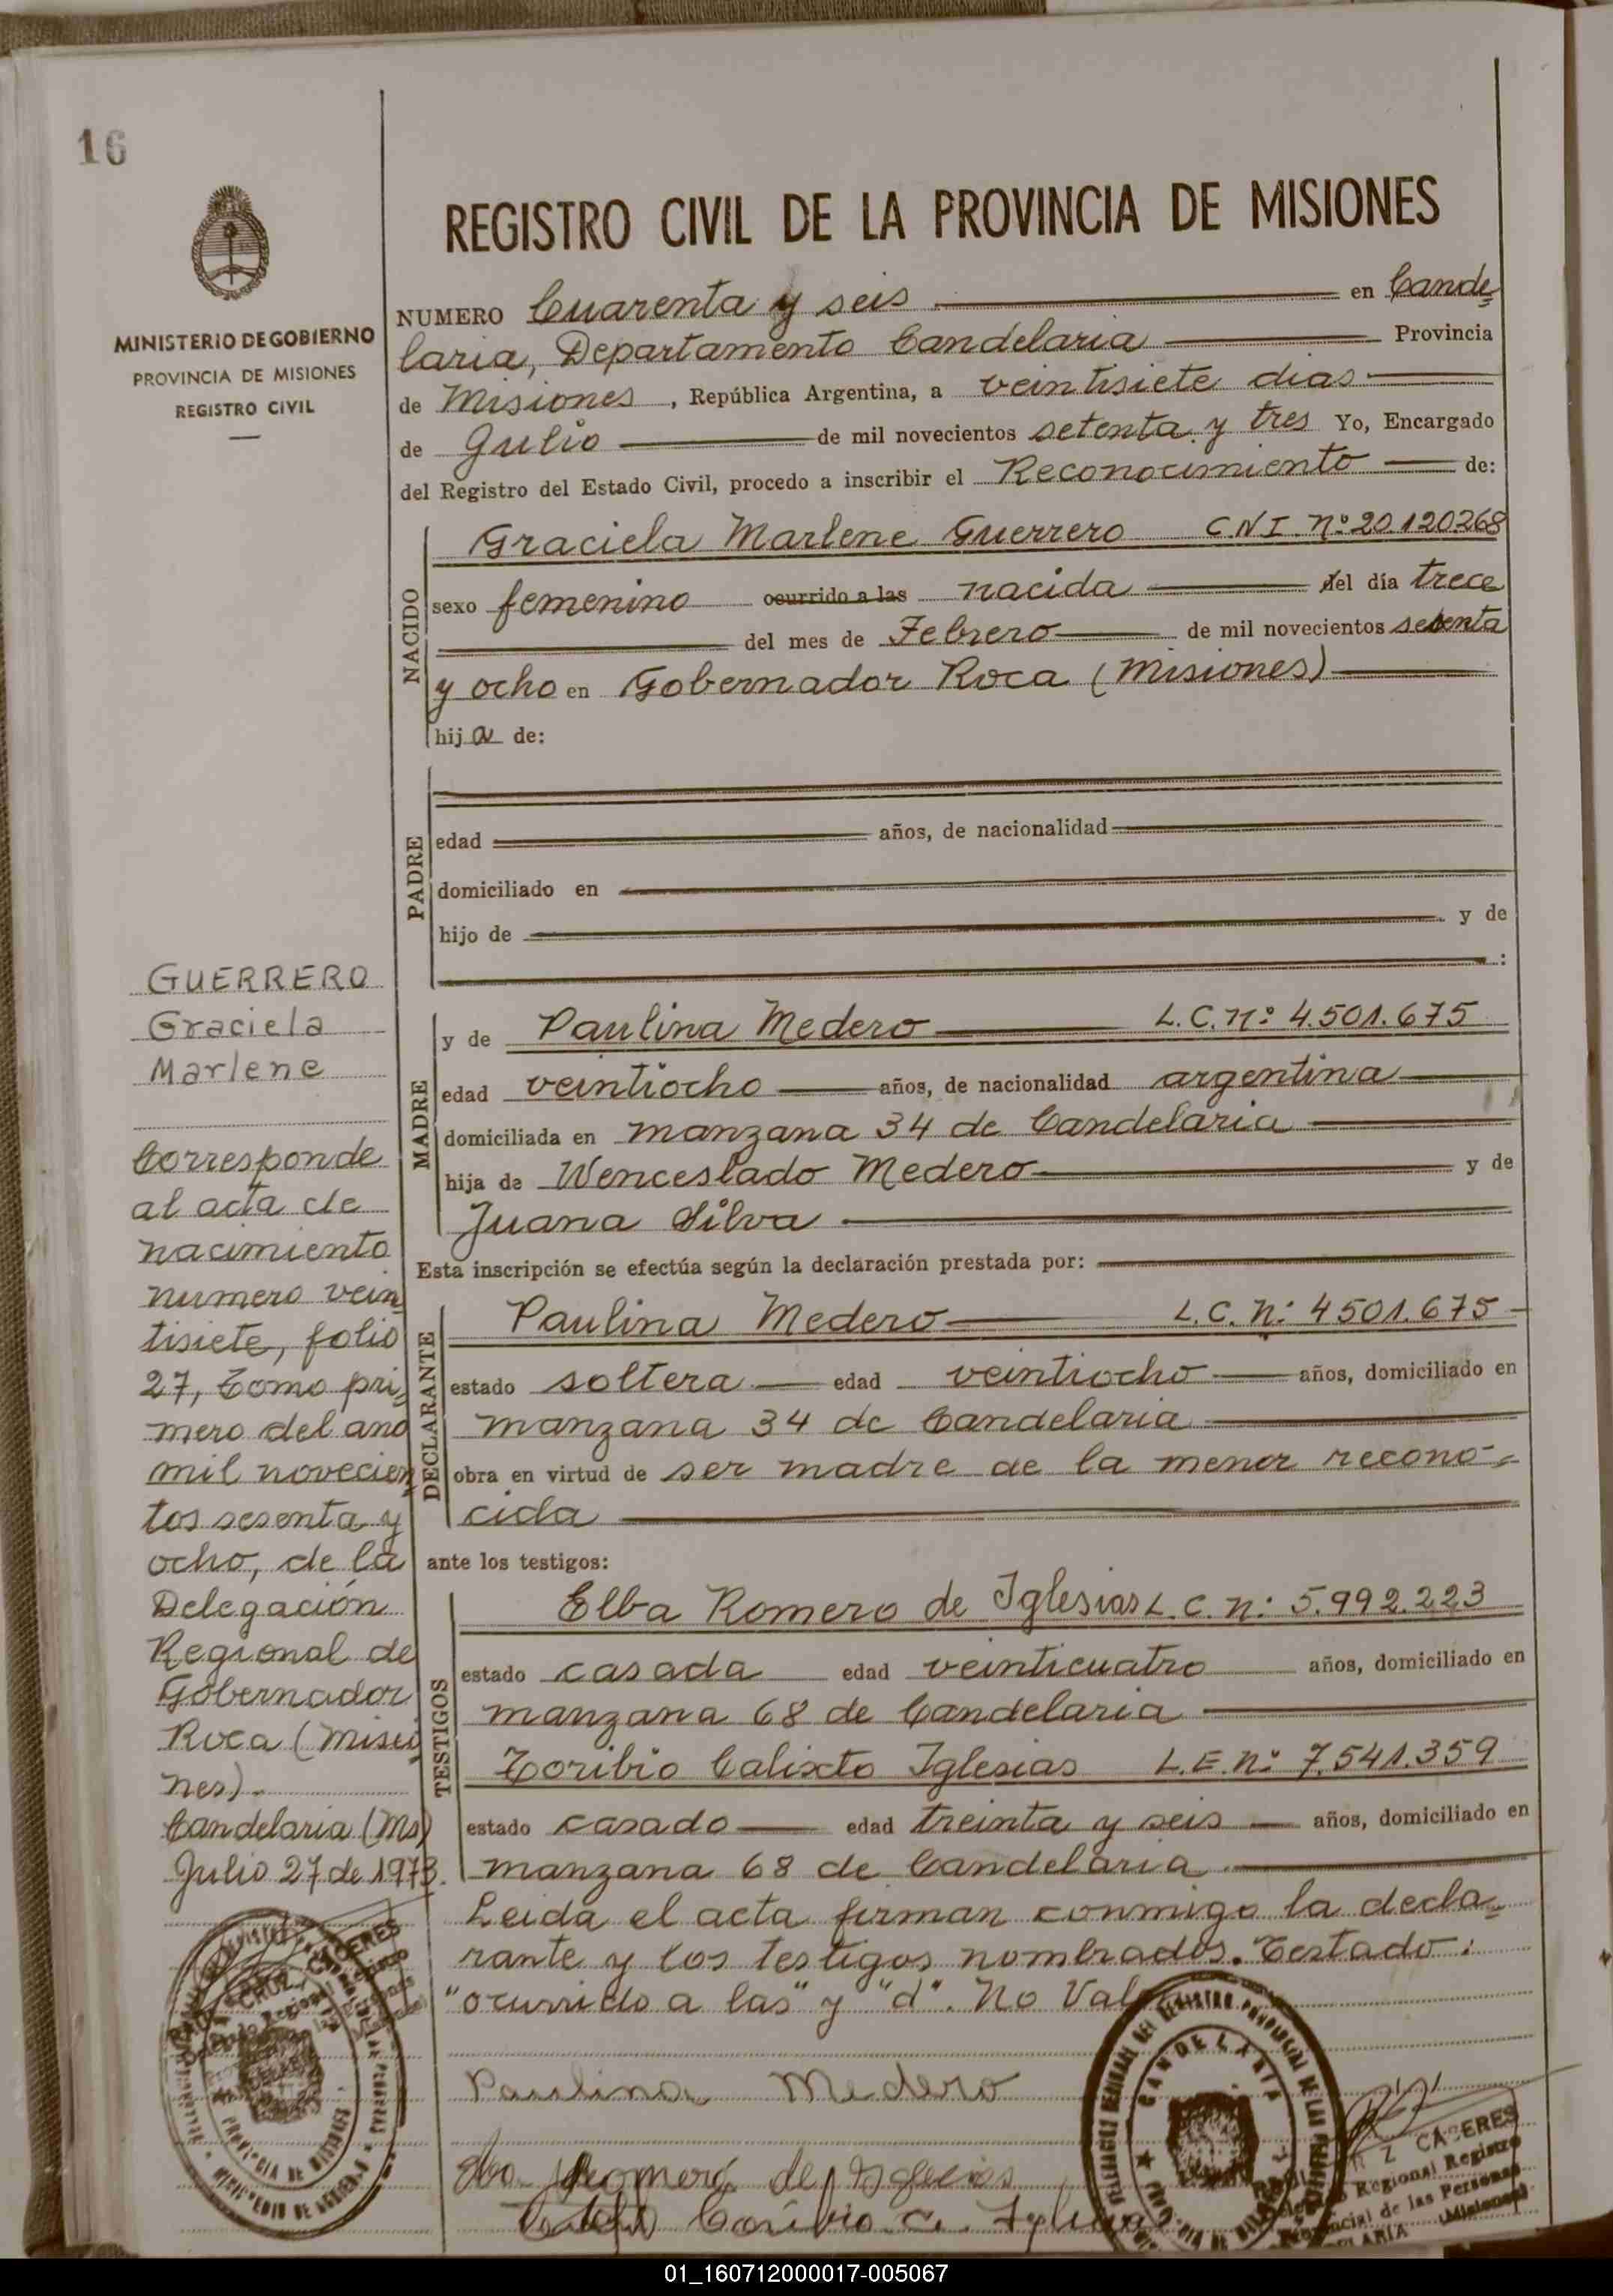 16
MINISTERIO DE GOBIERNO
PROVINCIA DE MISIONES
REGISTRO CIVIL
REGISTRO CIVIL DE LA PROVINCIA DE MISIONES
NUMERO Cuarenta y seis en Cande=
laria, Departamento Candelaria Provincia
de Misiones, República Argentina, a veintisiete dias
de Julio de mil novecientos setenta y tres Yo, Encargado
del Registro del Estado Civil, procedo a inscribir el Reconocimiento de:
NACIDO
Graciela Marlene Guerrero C.N.I. Nº 20.120.268
sexo femenino ocurrido a las nacida del día trece
del mes de Febrero de mil novecientos sesenta
y ocho en Gobernador Roca (Misiones)
hija de:
PADRE
edad años, de nacionalidad
domiciliado en
hijo de y de
:
MADRE
y de Paulina Medero L.C. nº 4.501.675
edad veintiocho años, de nacionalidad argentina
domiciliada en manzana 34 de Candelaria
hija de Wenceslado Medero y de
Juana Silva
Esta inscripción se efectúa según la declaración prestada por:
DECLARANTE
Paulina Medero L.C. n: 4501.675
estado soltera edad veintiocho años, domiciliado en
manzana 34 de Candelaria
obra en virtud de ser madre de la menor recono=
cida
ante los testigos:
TESTIGOS
Elba Romero de Iglesias L.C. n: 5.992.223
estado casada edad veinticuatro años, domiciliado en
manzana 68 de Candelaria
Toribio Calixto Iglesias L.E. nº 7.541.359
estado casado edad treinta y seis años, domiciliado en
manzana 68 de Candelaria.
Leida el acta firman conmigo la decla=
rante y los testigos nombrados. Testado:
"ocurrido a las" y "d". No Vale
Paulina Medero
Romero de Iglesias
Toribio C. Iglesias
GUERRERO
Graciela
Marlene
Corresponde
al acta de
nacimiento
numero vein
tisiete, folio
27, Tomo pri
mero del ano
mil novecien
tos sesenta y
ocho, de la
Delegación
Regional de
Gobernador
Roca (Misio
nes).
Candelaria (Ms)
Julio 27 de 1973.
CRUZ CACERES
CANDELARIA
CACERES
Regional Registro
Provincial de las Personas
(Misiones)
01_160712000017-005067